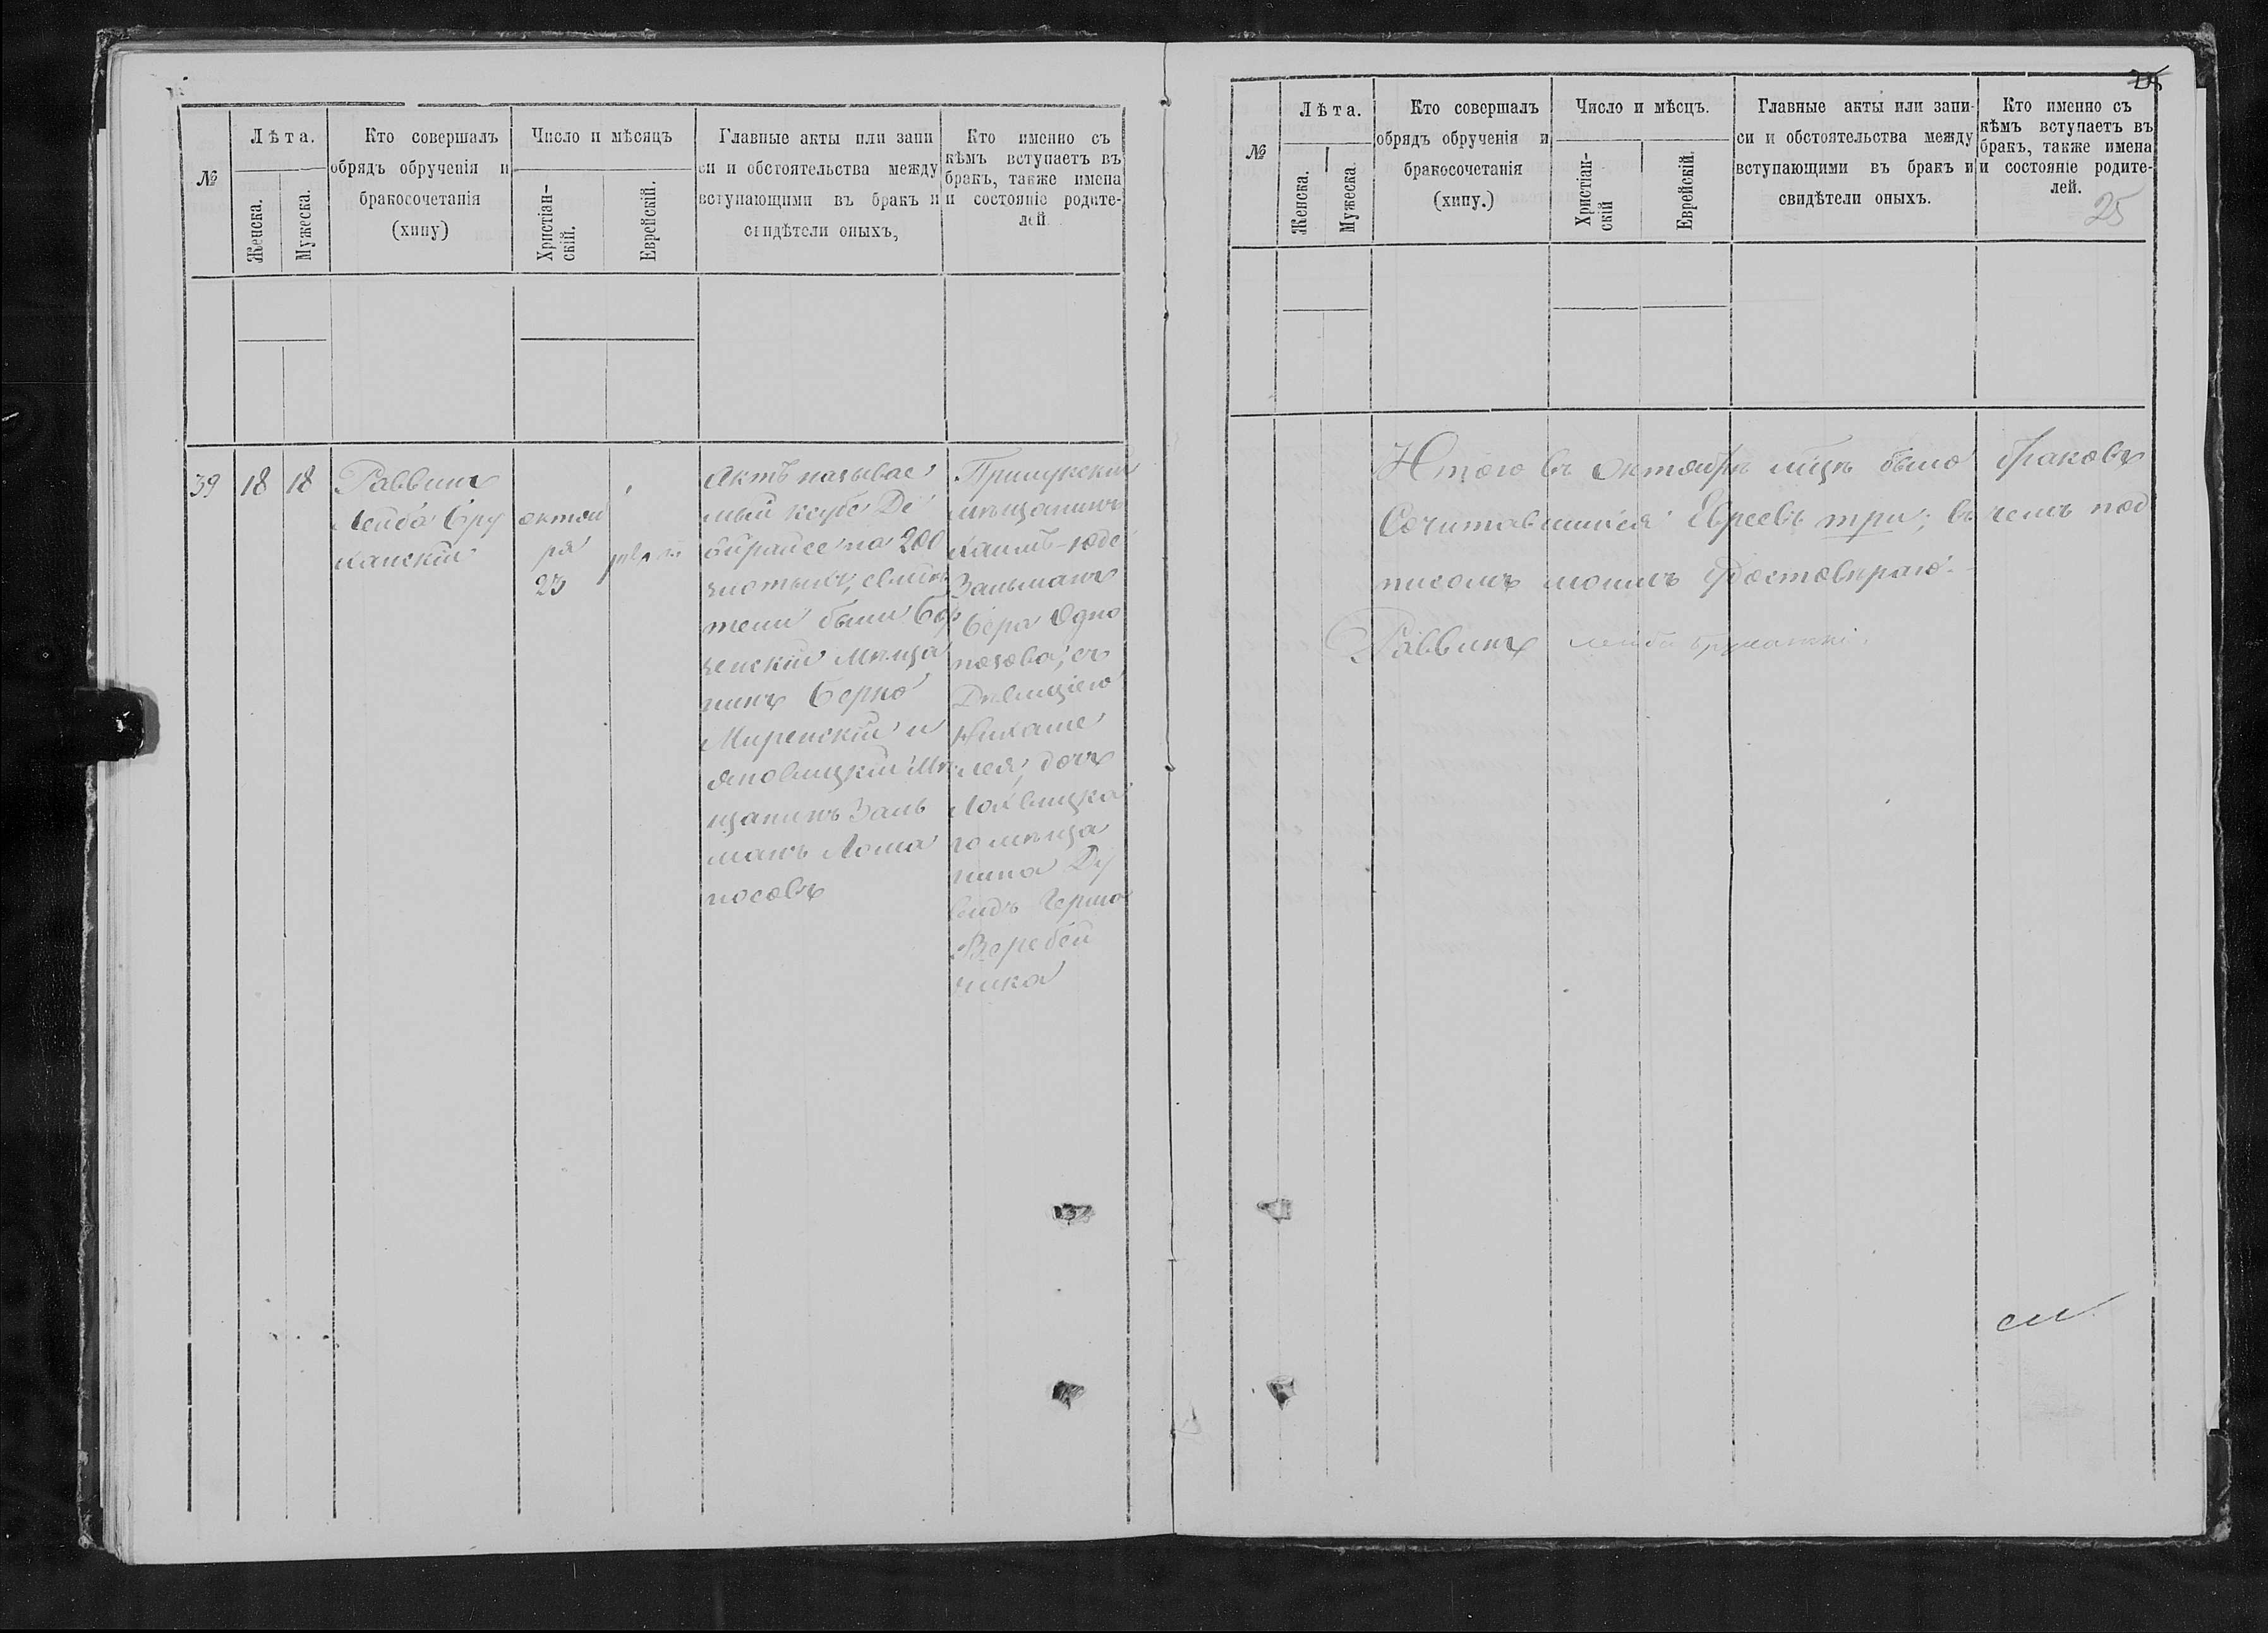 №
Лѣта.
Женска.
Мужеска.
Кто совершалъ
обрядъ обрученія и
бракосочетанія
(хипу)
Число и мѣсяцъ
Христіан-
скій.
Еврейскій.
Главные акты или запи
си и обстоятельства между
вступающими въ бракъ и
свидѣтели оныхъ,
Кто именно съ
кѣмъ вступаетъ въ
бракъ, также имена
и состояніе родите-
лей.
39
18
18
Раввинъ
Лейба Бру
канскій
октяб
ря
23
Актъ называе
мый ксубе Де
ойрайсе на 200
злотыхъ, свидѣ
тели были
зенскій мѣща
нинъ Берко
Миренскій и
Яновицкій мѣ
щанинъ Заль
манъ Лоша
носовъ
мѣщанинъ
Хаимъ-Юде
Зальманъ
Бера Одно
позова, съ
Дѣвицею
дочъ
го мѣща
нина Ду
видъ Герша
Веребей
чика
25
№
Лѣта.
Женска.
Мужеска.
Кто совершалъ
обрядъ обрученія и
бракосочетанія
(хипу.)
Число и мѣсцъ.
Христіан-
скій
Еврейскій.
Главные акты или запи-
си и обстоятельства между
вступающими въ бракъ и
свидѣтели оныхъ.
Кто именно съ
кѣмъ вступаетъ въ
бракъ, также имена
и состояніе родите-
лей.
25
Итого въ октябрѣ мѣцѣ было браковъ
Сочитавшихся Евреевъ три; въ чемъ под
писомъ моимъ удостовѣраю.
Раввинъ